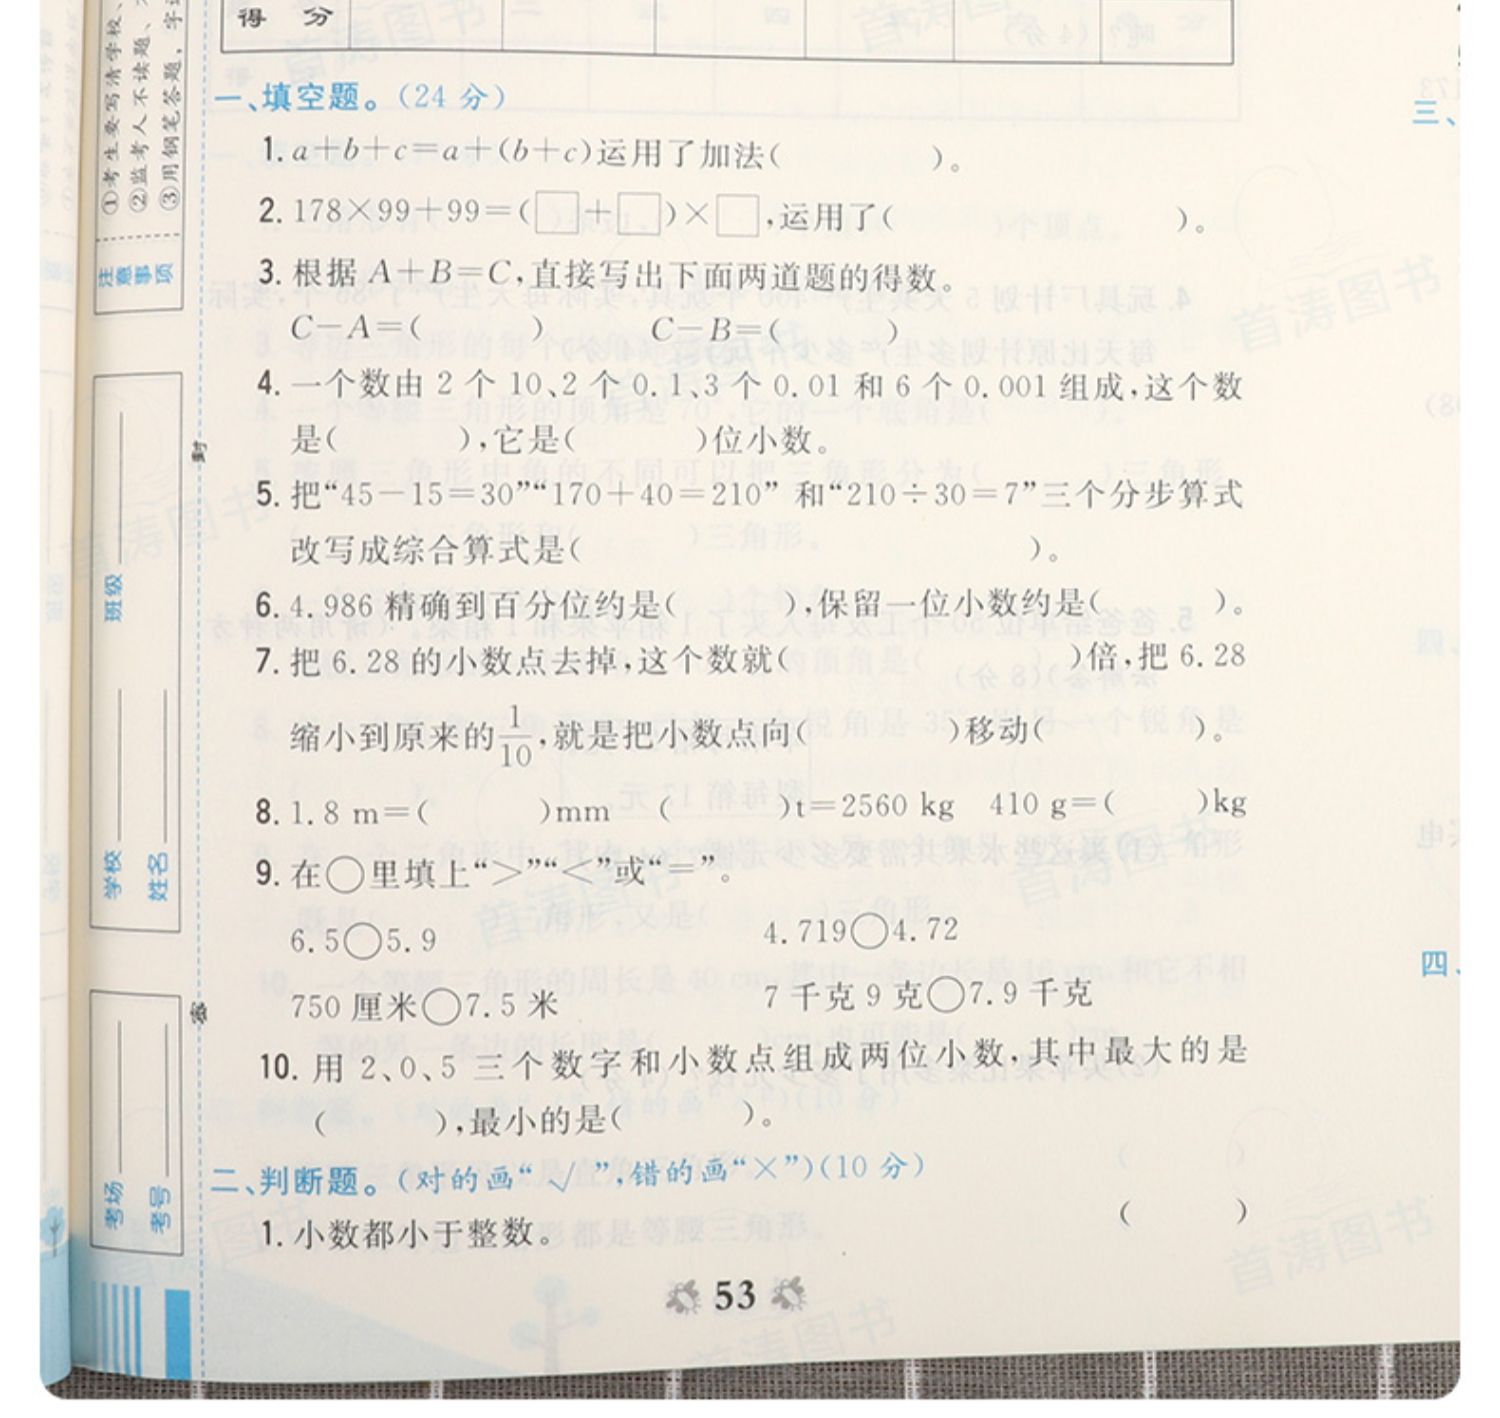 得 分
一、填空题。(24 分)
1. a+b+c=a+(b+c)运用了加法( )。
2. 178×99+99=(□+□)×□,运用了( )。
3. 根据 A+B=C,直接写出下面两道题的得数。
C-A=( ) C-B=( )
4. 一个数由 2 个 10、2 个 0.1、3 个 0.01 和 6 个 0.001 组成,这个数
是( ),它是( )位小数。
5. 把“45-15=30”“170+40=210” 和“210÷30=7”三个分步算式
改写成综合算式是( )。
6. 4.986 精确到百分位约是( ),保留一位小数约是( )。
7. 把 6.28 的小数点去掉,这个数就( )倍,把 6.28
缩小到原来的1/10,就是把小数点向( )移动( )。
8. 1.8 m=( )mm ( )t=2560 kg 410 g=( )kg
9. 在○里填上“>”“<”或“=”。
6.5○5.9 4.719○4.72
750 厘米○7.5 米 7 千克 9 克○7.9 千克
10. 用 2、0、5 三个数字和小数点组成两位小数,其中最大的是
( ),最小的是( )。
二、判断题。(对的画“√”,错的画“×”)(10 分)
1. 小数都小于整数。 ( )
53
①考生要写清学校、
②监考人不读题、
③用钢笔答题,字
注意事项
班级
学校
姓名
考场
考号
封
密
三、
四、
首涛图书
首涛图书
首涛图书
首涛图书
首涛图书